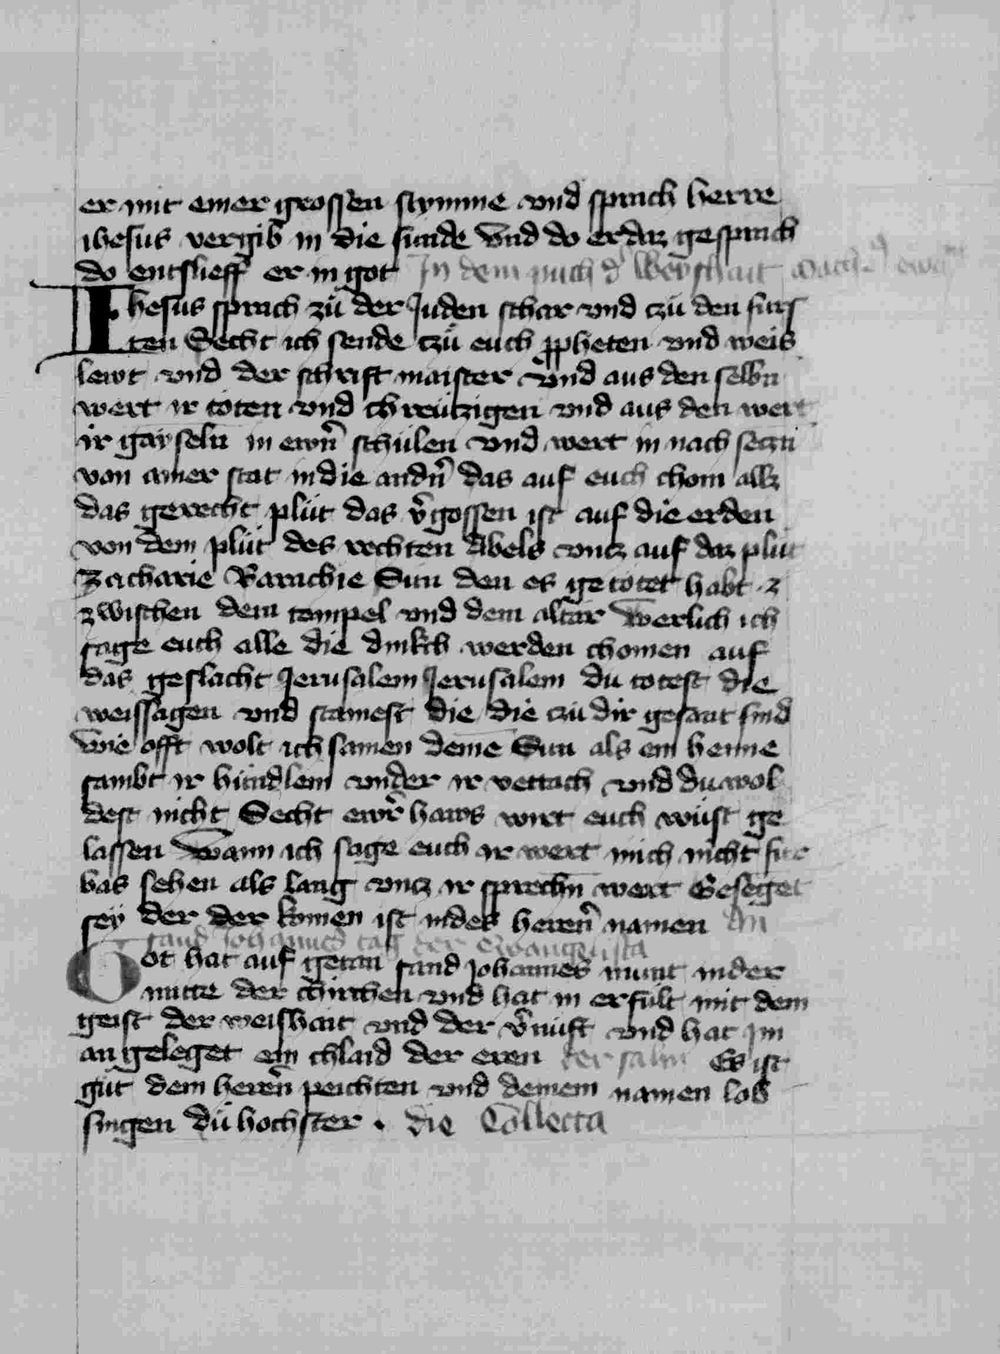 er mit einer grossen stymme vnd sprach herre
ihesus vergib in die sunde vnd do er daz gesprach
do entslieff er in got In dem puch d' Weyshait
Ihesus sprach zů der Juden schar vnd czů den furs
ten Secht ich sende czů euch propheten vnd weis
lewt vnd der schrift maister vnd aus den selbn
wert ir toten vnd chrewtzigen vnd aus den wert
ir gayseln in ewrn schůlen vnd wert in nach
von ainer stat in die andrn das auf euch chom allz
das gerecht plůt das v'gossen ist auf die erden
von dem plůt des rechten Abels vncz auf daz plůt
Zacharie Barachie Sun den es getotet habt z
zwischen dem tempel vnd dem altar Werlich ich
sage euch alle die dinkch werden chomen auf
das geslacht Jerusalem Jerusalem du totest die
weissagen vnd stainest die die czů dir gesant sind
wie offt wolt ich samen deine Sun als ein henne
sambt ir hůndlein vnder ir vettach vnd du wol
dest nicht Secht ewr haws wirt euch wůst ge
lassen Wann ich sage euch ir wert mich nicht fur
bas sehen als lang vncz ir sprechn wert Geseget
sey der der komen ist in des herren namen An
sand Johannes tag der Ewangelista
Got hat auf getan sand Johannes munt in der
mitte der chirchen vnd hat in erfult mit dem
geist der weishait vnd der v'nuft vnd hat im
an geleget ein chlaid der eren der salm Es ist
gůt dem herren peichten vnd deinem namen lob
singen dů hochster . die Collecta